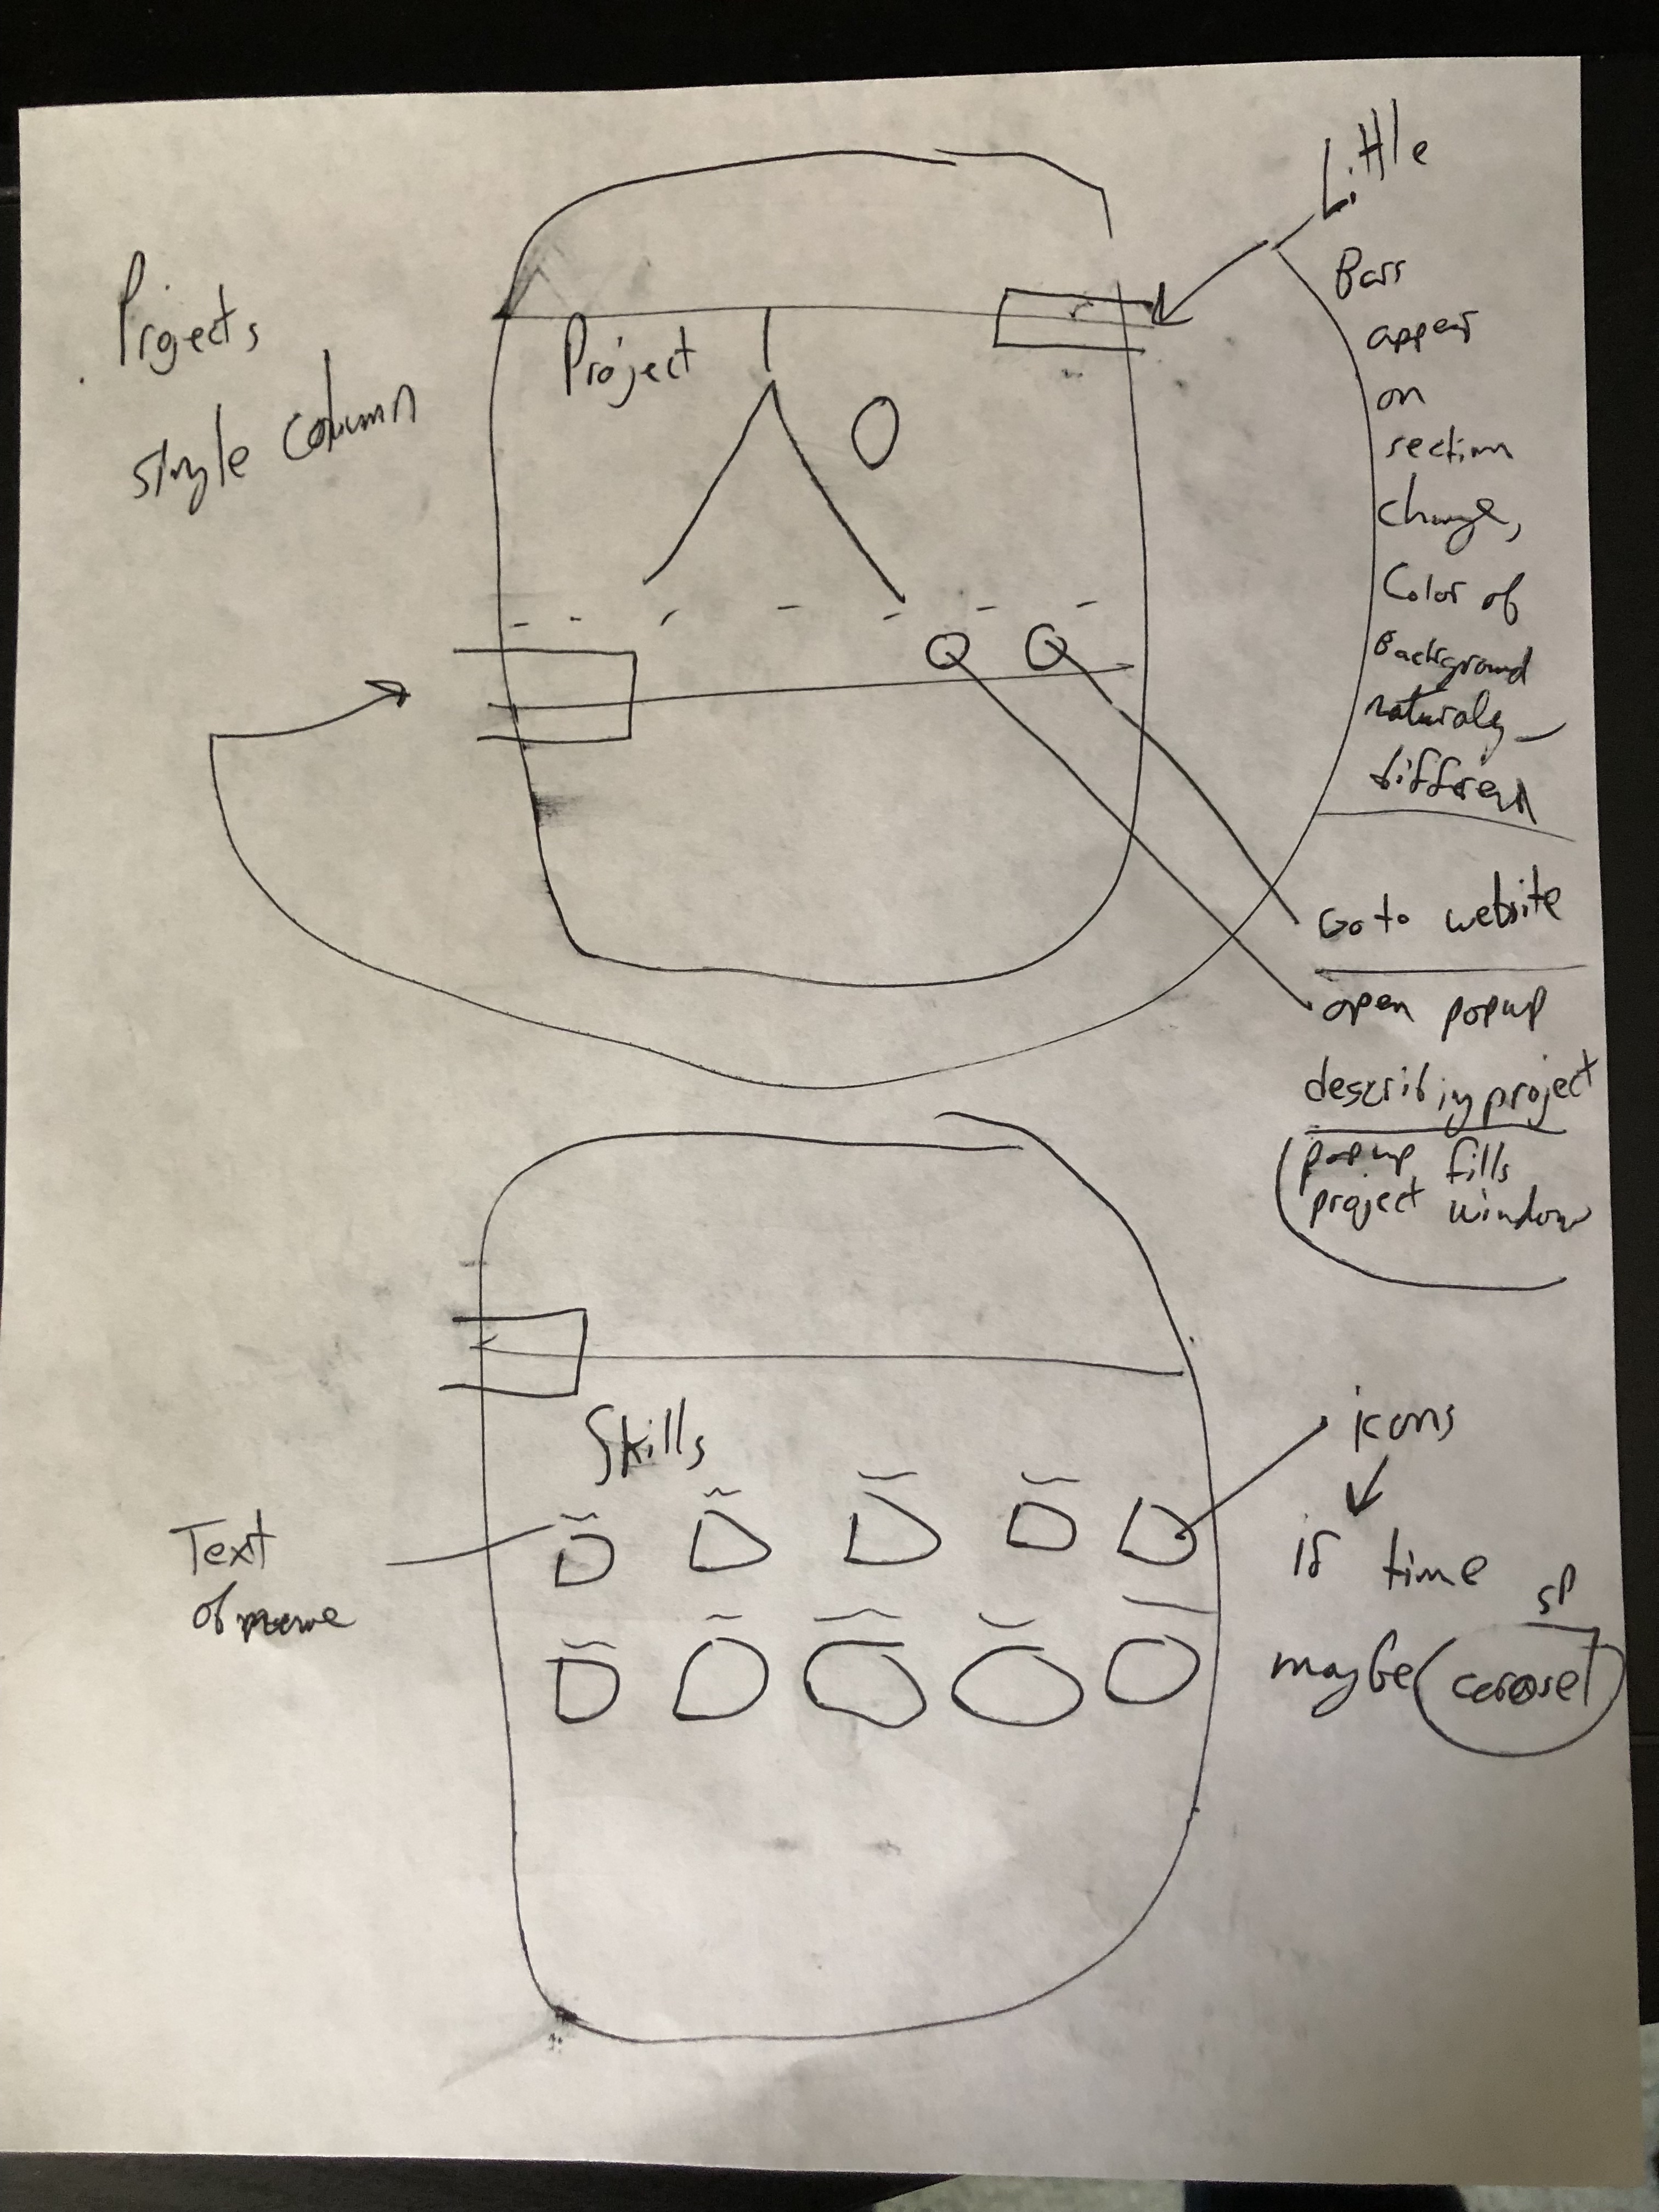 Projects
single column
Project
Little
Bars
appear
on
section
change,
Color of
Background
naturaly
different
Go to website
open popup
describing project
popup fills
project window
Skills
icons
if time
sp
maybe carosel
Text
of name